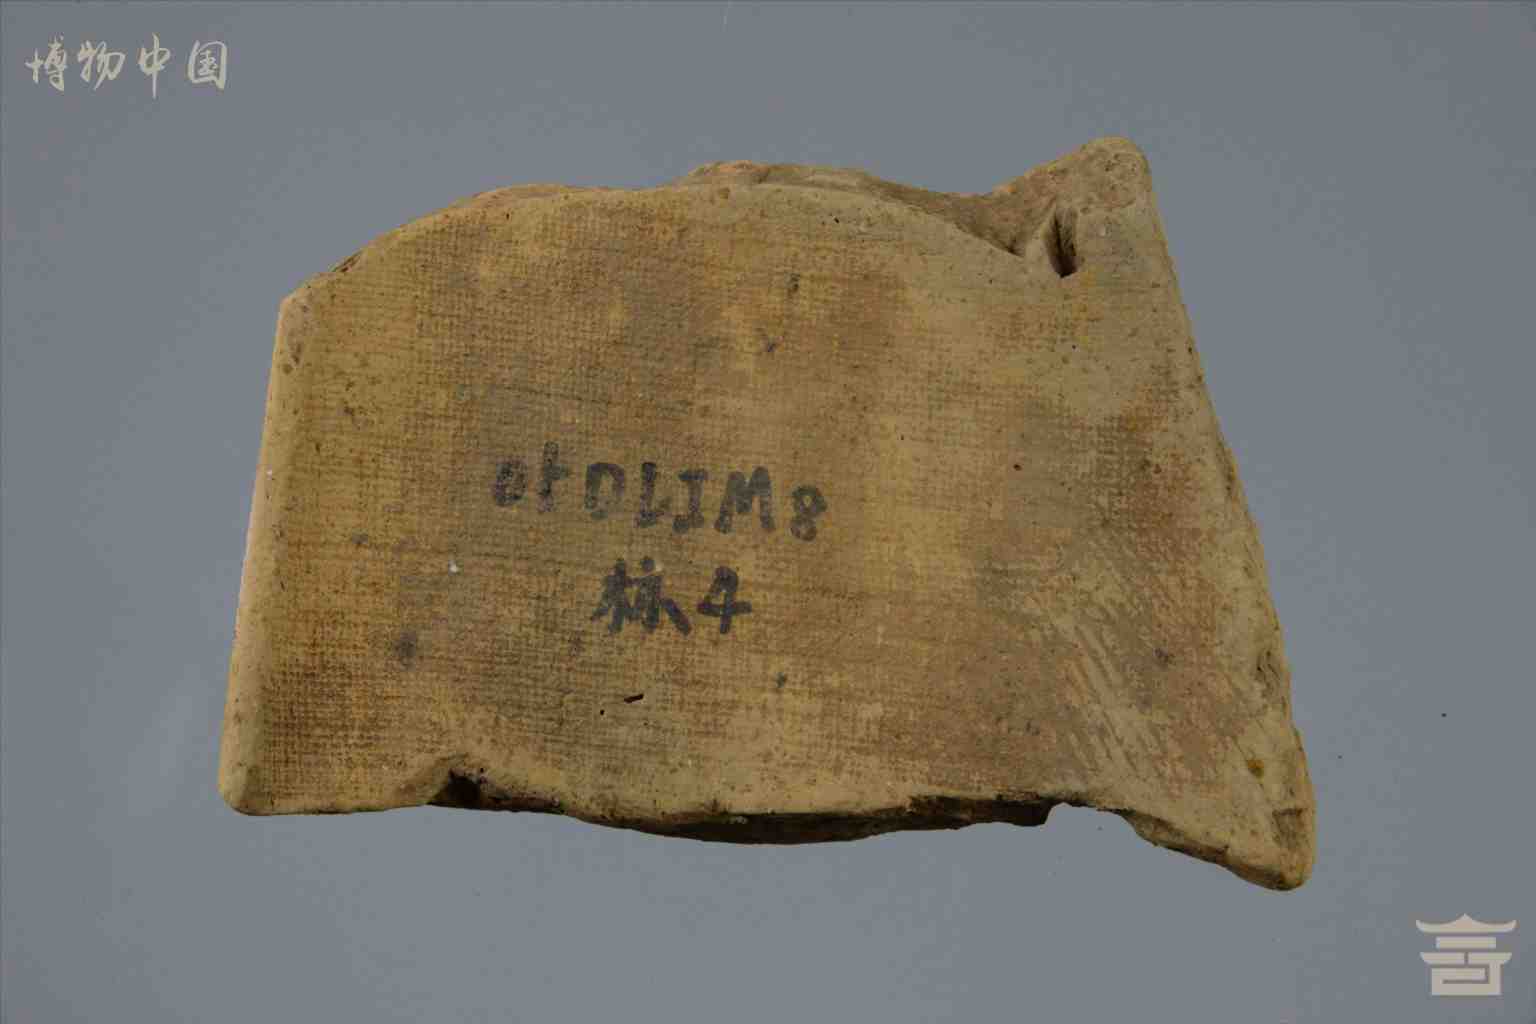 博物中国
DLIM8
标4